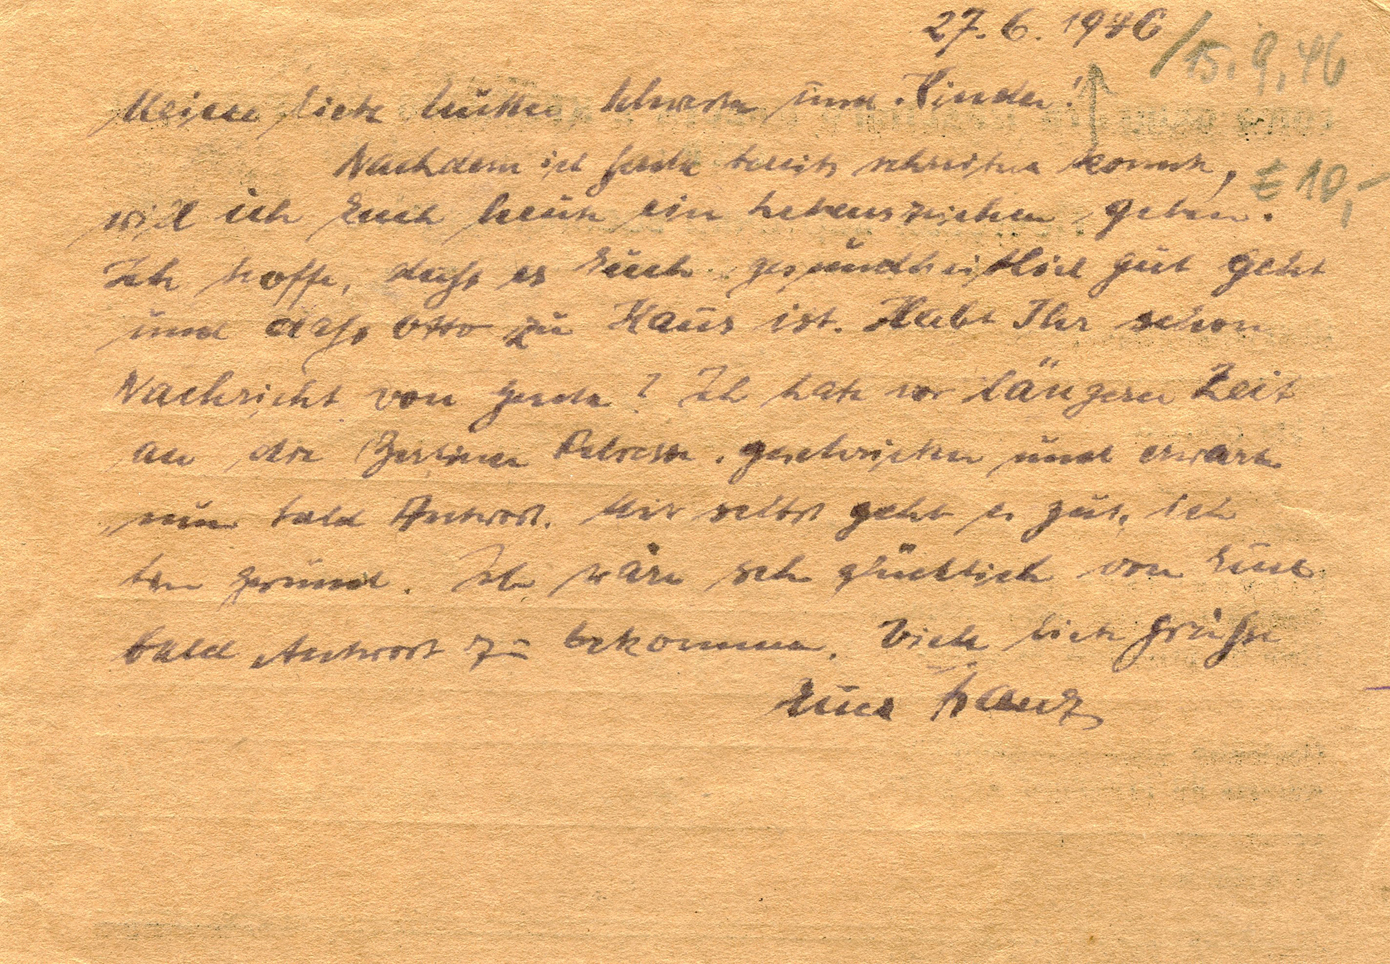 27.6.1946 / 15.9.46
Meine liebe Mutter, Schwester und Kinder!
Nachdem ich Gerda bereits schreiben konnte,
€ 10,-
will ich Euch heute ein Lebenszeichen geben.
Ich hoffe, daß es Euch gesundheitlich gut geht
und daß Otto zu Haus ist. Habt Ihr schon
Nachricht von Gerda? Ich habe vor längerer Zeit
an die Berliner Adresse geschrieben und erwarte
nun bald Antwort. Mir selbst geht es gut, ich
bin gesund. Ich wäre sehr glücklich von Euch
bald Antwort zu bekommen. Viele liebe Grüße
Euer Franz